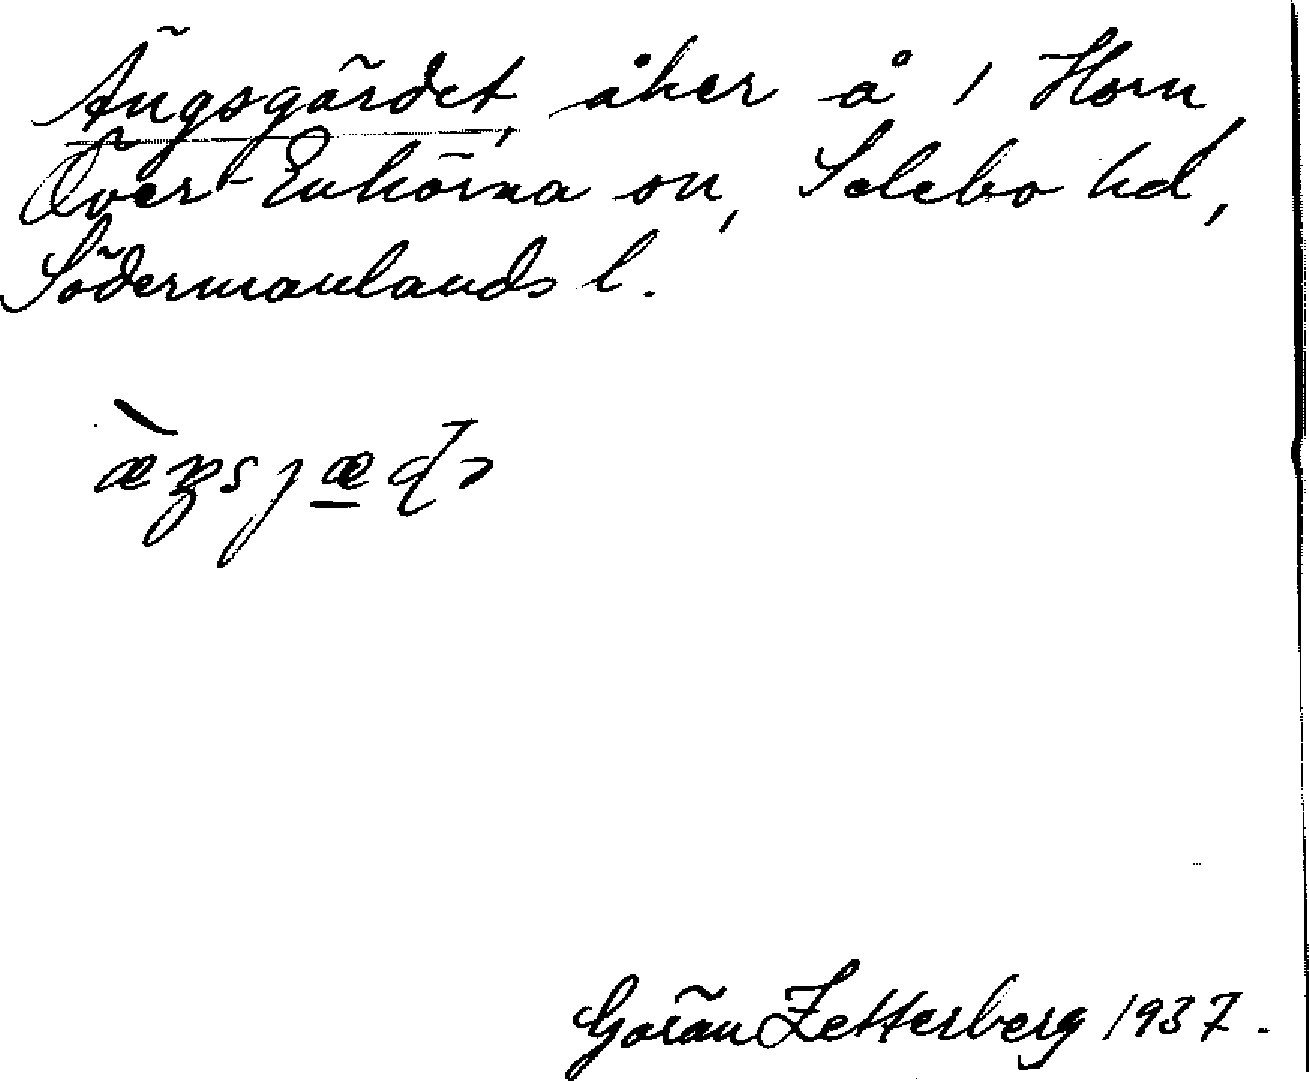 Ängsgärdet, åker å 1 Horn,
Över-Enhörna sn, Selebo hd,
Södermanlands l.
Göran Zetterberg 1937.